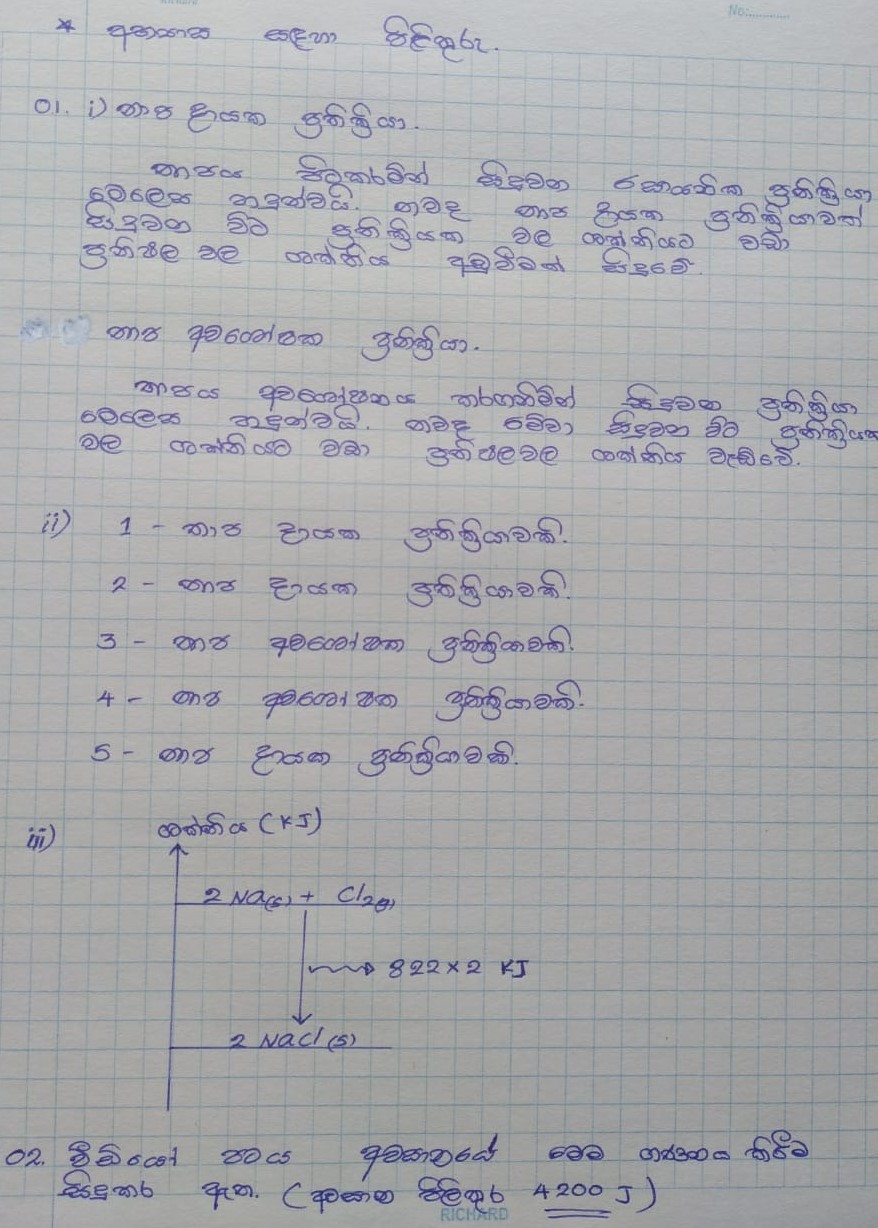 No:............
* අභ්‍යාස සඳහා පිළිතුරු.
01. i) තාප දායක ප්‍රතික්‍රියා.
තාපය පිටකරමින් සිදුවන රසායනික ප්‍රතික්‍රියා
මෙලෙස හඳුන්වයි. තවද තාප දායක ප්‍රතික්‍රියාවක්
සිදුවන විට ප්‍රතික්‍රියක වල ශක්තියට වඩා
ප්‍රතිඵල වල ශක්තිය අඩුවීමක් සිදුවේ.
තාප අවශෝෂක ප්‍රතික්‍රියා.
තාපය අවශෝෂණය කරගනිමින් සිදුවන ප්‍රතික්‍රියා
මෙලෙස හඳුන්වයි. තවද මේවා සිදුවන විට ප්‍රතික්‍රියක
වල ශක්තියට වඩා ප්‍රතිඵලවල ශක්තිය වැඩිවේ.
ii) 1 - තාප දායක ප්‍රතික්‍රියාවකි.
2 - තාප දායක ප්‍රතික්‍රියාවකි.
3 - තාප අවශෝෂක ප්‍රතික්‍රියාවකි.
4 - තාප අවශෝෂක ප්‍රතික්‍රියාවකි.
5 - තාප දායක ප්‍රතික්‍රියාවකි.
iii) ශක්තිය (KJ)
2 Na(s) + Cl2(g)
822 × 2 KJ
2 NaCl (s)
02. වීඩියෝ පටය අවසානයේ මෙම ගණනය කිරීම
සිදුකර ඇත. (අවසාන පිලිතුර 4200 J)
RICHARD